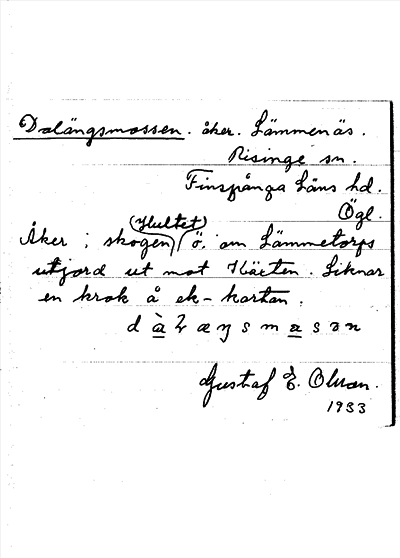 Dalängsmossen. åker. Lämmenäs.
Risinge sn.
Finspånga Läns hd.
Ögl.
(Hultet)
Åker i skogen ö. om Lämmetorps
utjord ut mot Kärten. Liknar
en krok å ek-kartan.
Gustaf E. Olsson.
1933